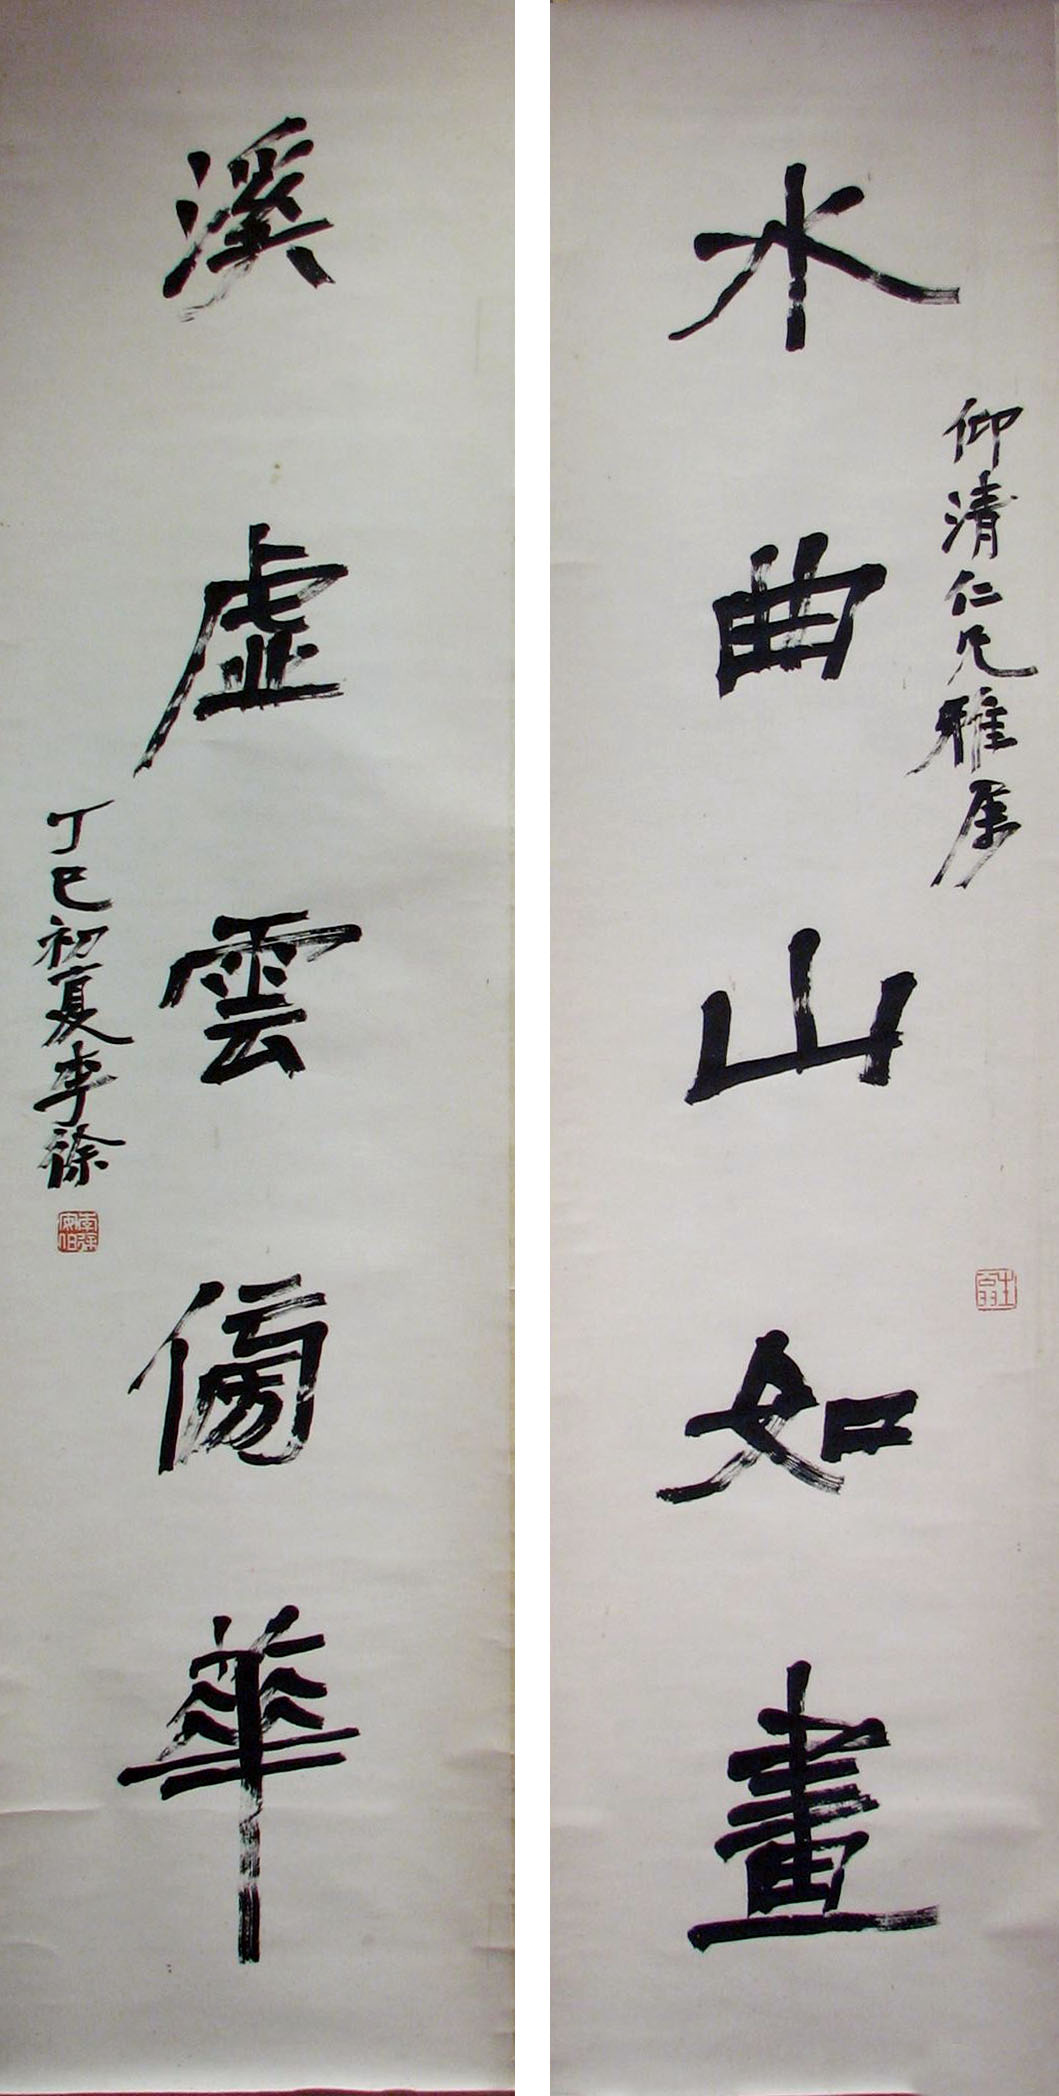 水曲山如畫
仰清仁兄雅屬
溪虛雲傍華
丁巳初夏李徐